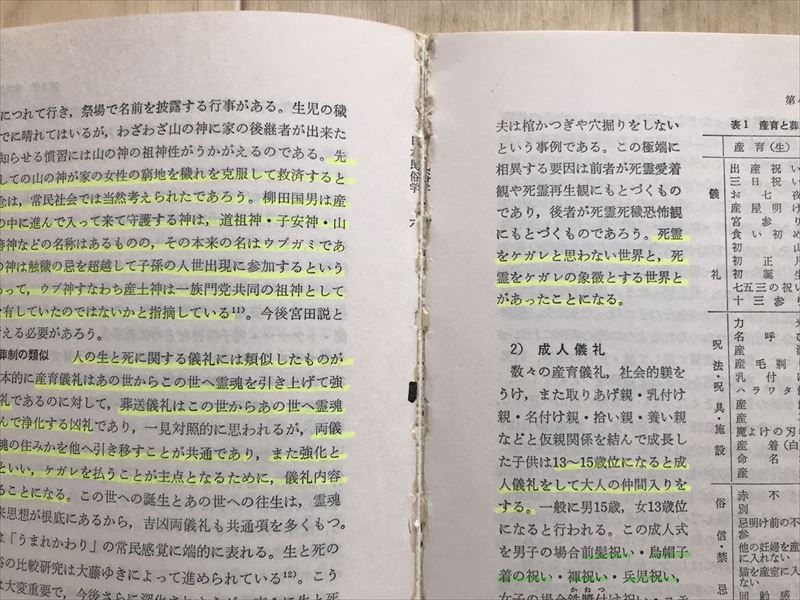 につれて行き，祭場で名前を披露する行事がある。生児の穢
でに晴れてはいるが，わざわざ山の神に家の後継者が出来た
知らせる慣習には山の神の祖神性がうかがえるのである。先
しての山の神が家の女性の窮地を穢れを克服して救済すると
念は，常民社会では当然考えられたであろう。柳田国男は産
の中に進んで入って来て守護する神は，道祖神・子安神・山
神などの名称はあるものの，その本来の名はウブガミであ
の神は触穢の忌を超越して子孫の人世出現に参加するという
あって，ウブ神すなわち産土神は一族門党共同の祖神として
有していたのではないかと指摘している11)。今後宮田説と
える必要があろう。
葬制の類似　人の生と死に関する儀礼には類似したものが
本的に産育儀礼はあの世からこの世へ霊魂を引き上げて強
礼であるのに対して，葬送儀礼はこの世からあの世へ霊魂
んで浄化する凶礼であり，一見対照的に思われるが，両儀
魂の住みかを他へ引き移すことが共通であり，また強化と
といい，ケガレを払うことが主点となるために，儀礼内容
ることになる。この世への誕生とあの世への往生は，霊魂
来思想が根底にあるから，吉凶両儀礼も共通項を多くもつ。
は「うまれかわり」の常民感覚に端的に表れる。生と死の
の比較研究は大藤ゆきによって進められている12)。こう
は大変重要で，今後さらに深化されるべき
夫は棺かつぎや穴掘りをしない
という事例である。この極端に
相異する要因は前者が死霊愛着
観や死霊再生観にもとづくもの
であり，後者が死霊死穢恐怖観
にもとづくものであろう。死霊
をケガレと思わない世界と，死
霊をケガレの象徴とする世界と
があったことになる。
2)　成人儀礼
数々の産育儀礼，社会的躾を
うけ，また取りあげ親・乳付け
親・名付け親・拾い親・養い親
などと仮親関係を結んで成長し
た子供は13〜15歳位になると成
人儀礼をして大人の仲間入りを
する。一般に男15歳，女13歳位
になると行われる。この成人式
を男子の場合前髪祝い・烏帽子
着の祝い・褌祝い・兵児祝い，
女子の場合鉄漿付け祝い・
第
表1　産育と葬
産育（生）
儀
礼
出産祝い
三日祝い
お七夜
産屋明け
宮参り
食い初め
初山
初正月
初誕生
七五三の祝い
十三参り
呪法・呪具・施設
力
名呼び
産
産毛剃
乳付
ハラワタ
産
産
魔よけの刃
産着（白
命名
産
俗信・禁忌
赤不
別
忌明け前の不
参
他の妊婦を産
に入れない
猫を産室に入
ない
同齢感